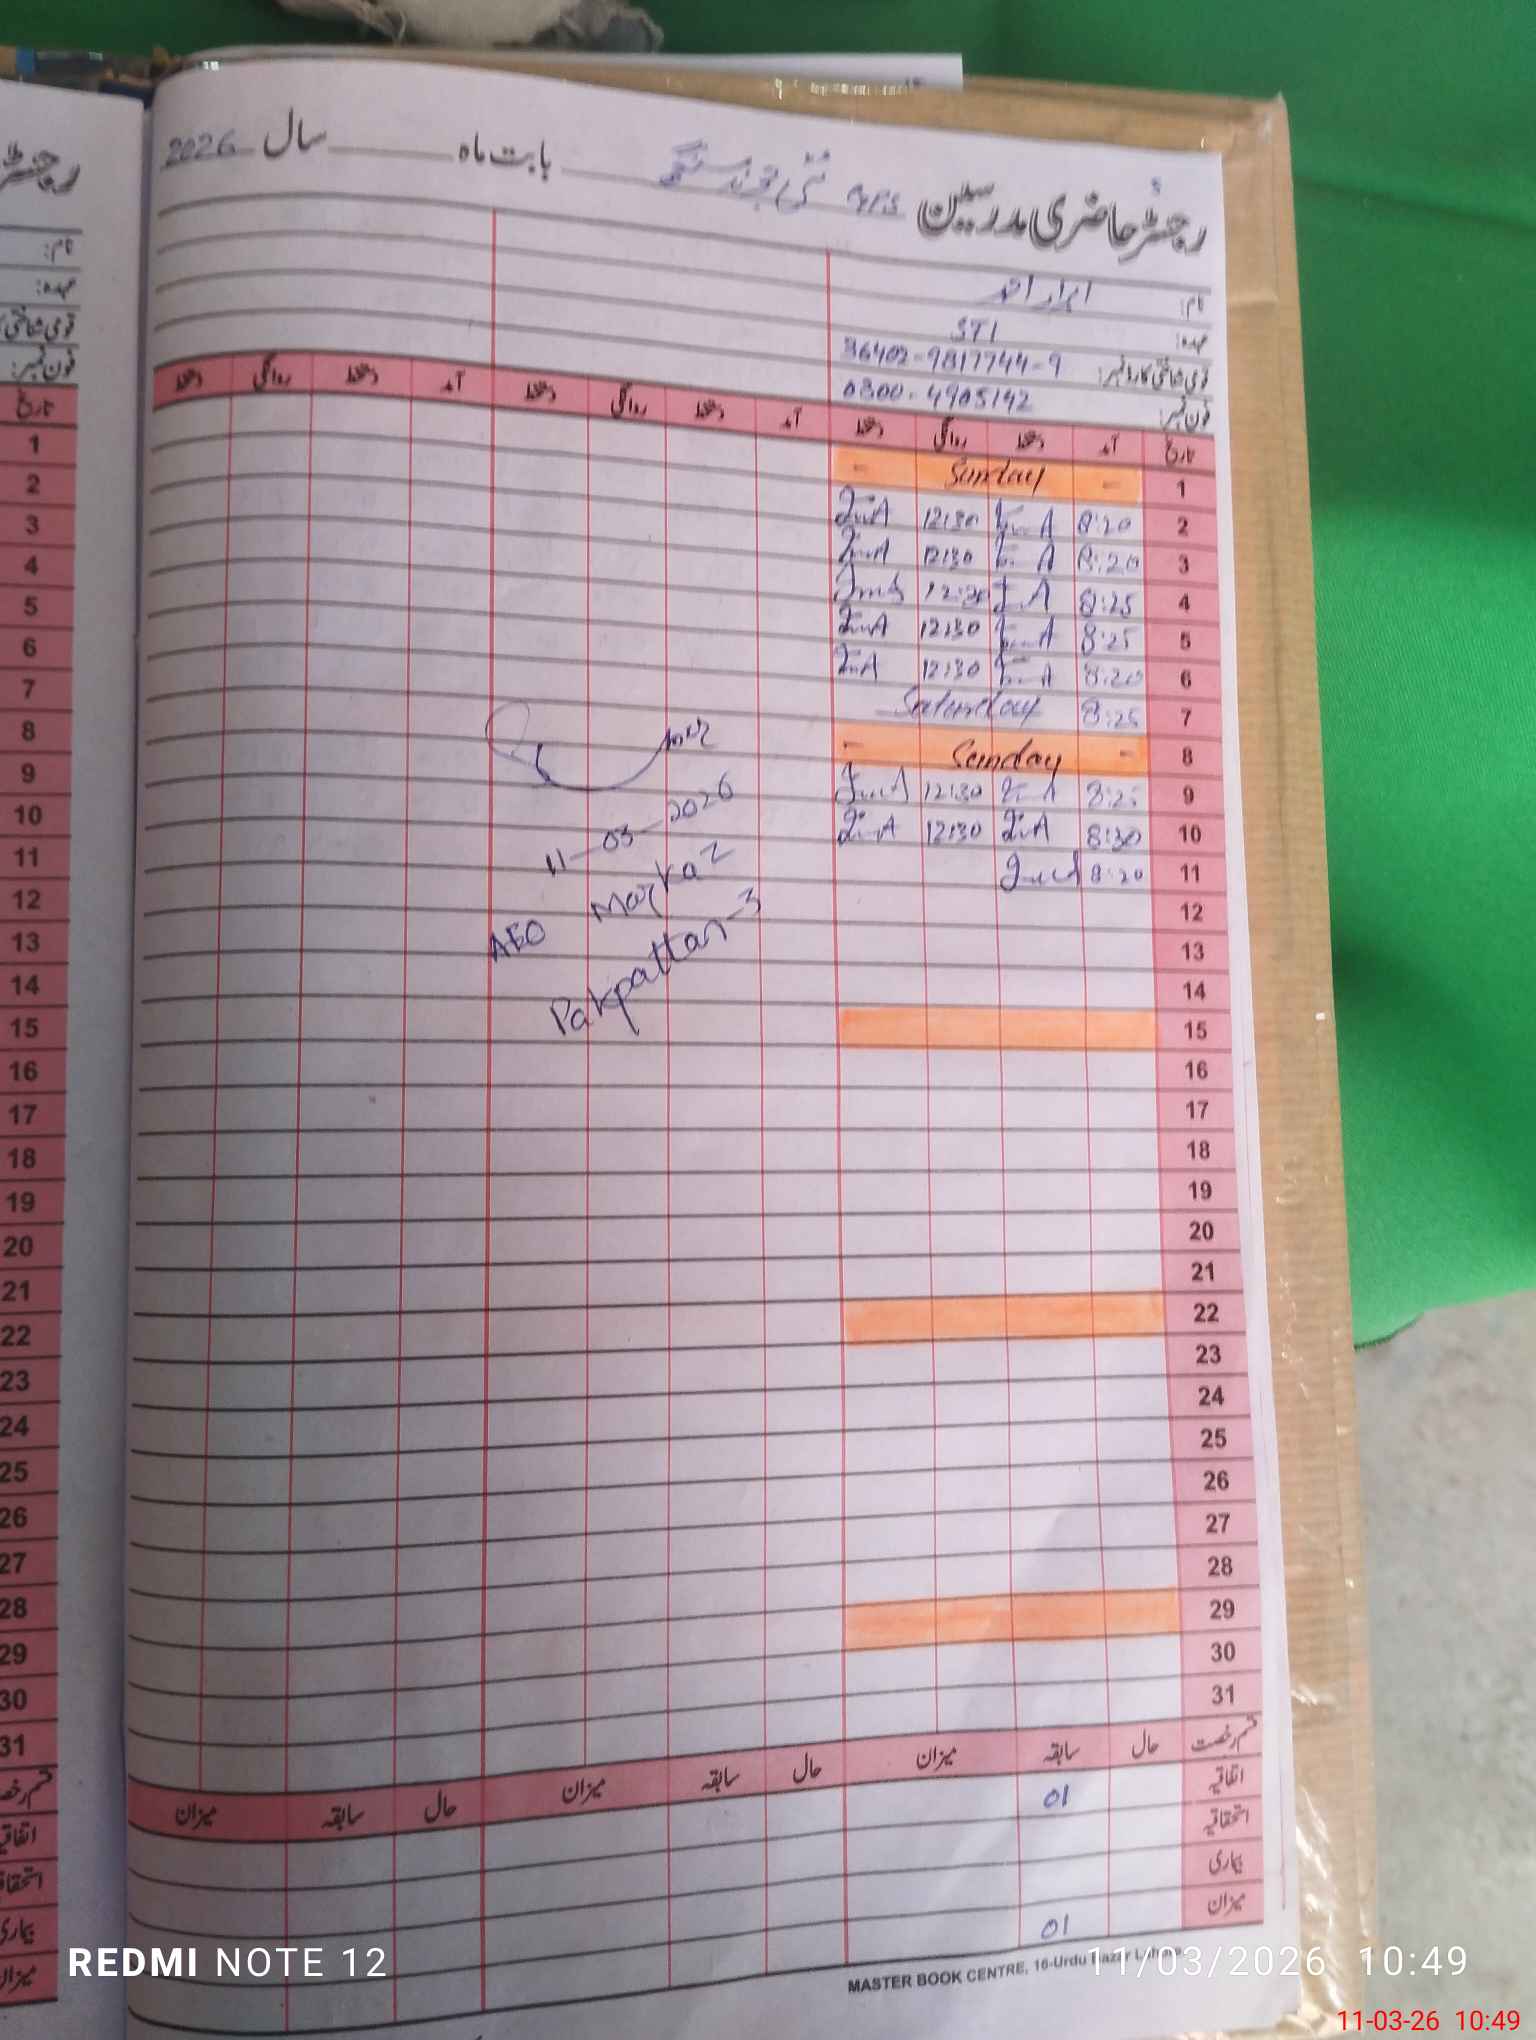 رجسٹر حاضری مدرسین GPS بابت ماہ سال 2026
نام: ابرار احمد
عہدہ: STI
قومی شناختی کارڈ نمبر: 36402-9817744-9
فون نمبر: 0300-4905142
تاریخ آمد دستخط روانگی دستخط آمد دستخط روانگی دستخط آمد دستخط روانگی دستخط
1 - Sunday -
2 8:20 12:30
3 8:20 12:30
4 8:25 12:30
5 8:25 12:30
6 8:20 12:30
7 8:25 Saturday
8 - Sunday -
9 8:25 12:30
10 8:30 12:30
11 8:20
12
13
14
15
16
17
18
19
20
21
22
23
24
25
26
27
28
29
30
31
11-03-2026
AEO Markaz
Pakpattan-3
قسم رخصت حال سابقہ میزان حال سابقہ میزان حال سابقہ میزان
اتفاقیہ 01
استحقاقیہ
بیماری
میزان 01
MASTER BOOK CENTRE, 16-Urdu Bazar
رجسٹر
نام:
عہدہ:
قومی شناختی
فون نمبر:
تاریخ
1
2
3
4
5
6
7
8
9
10
11
12
13
14
15
16
17
18
19
20
21
22
23
24
25
26
27
28
29
30
31
REDMI NOTE 12
11/03/2026 10:49
11-03-26 10:49